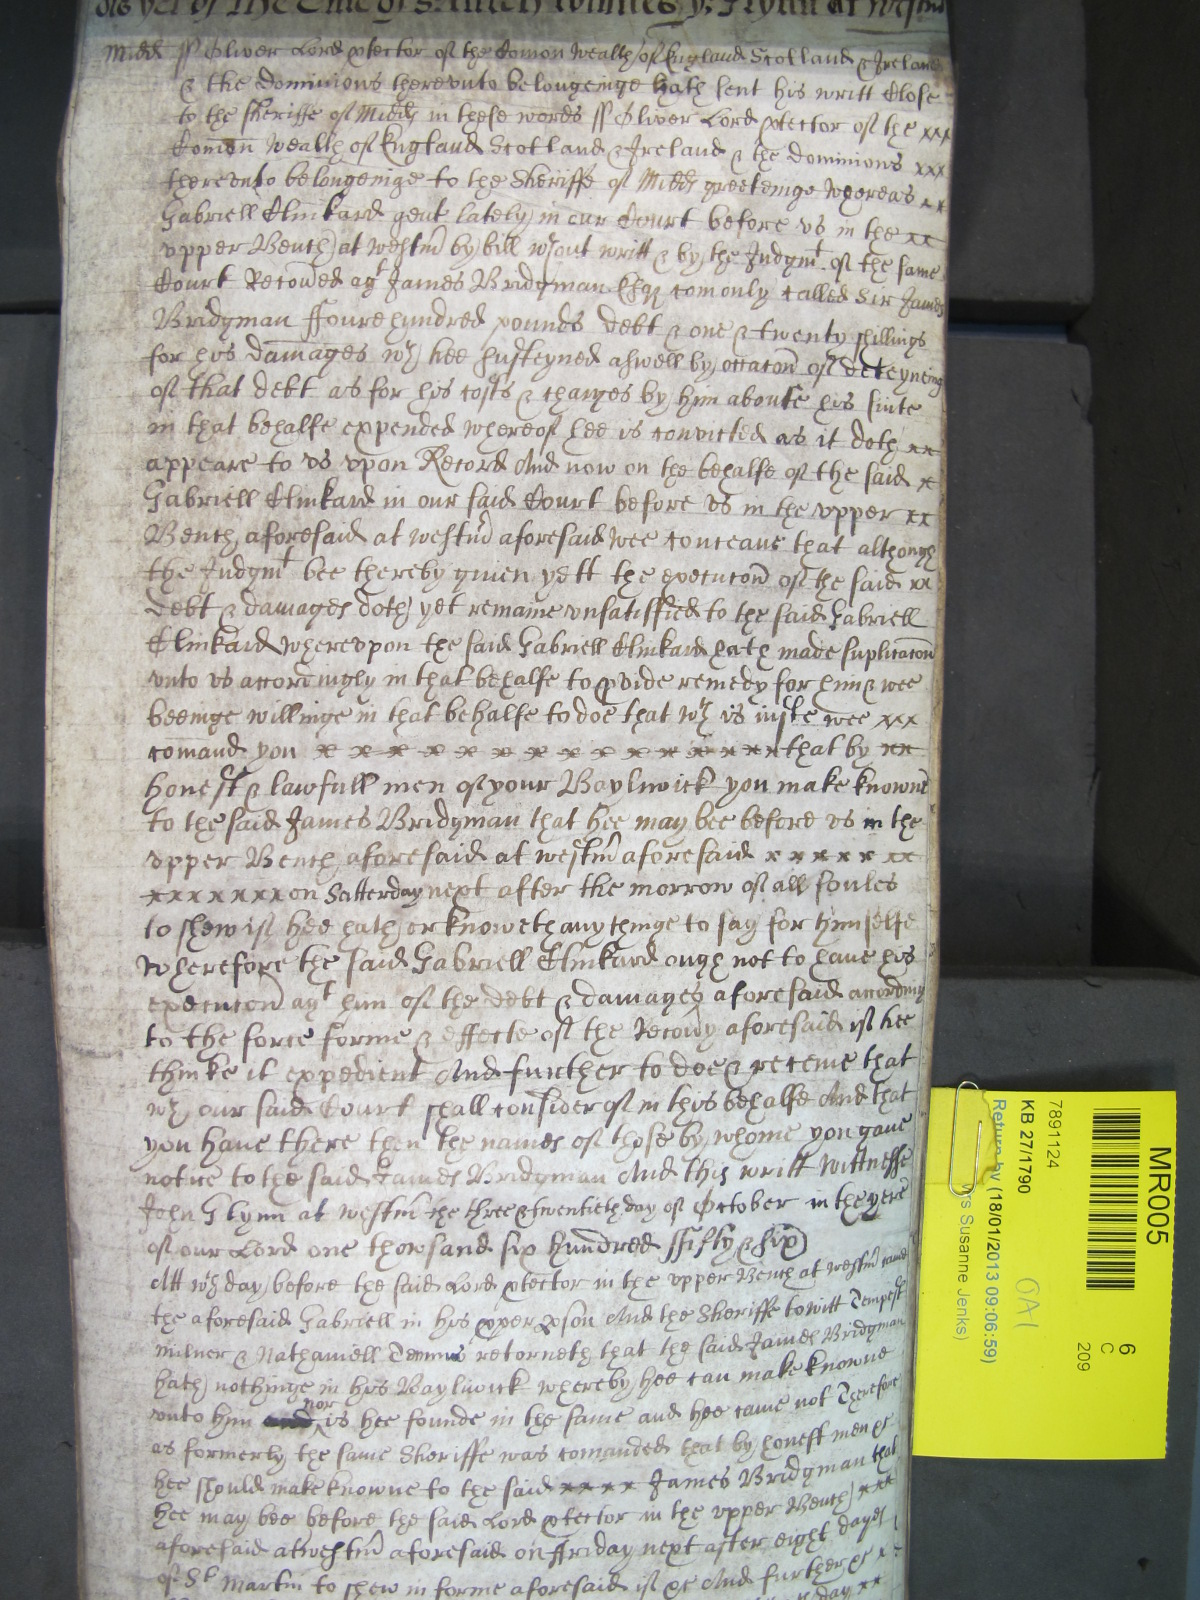 Midd ss Oliver Lord ptector of the Comon Wealth of England Scotland & Ireland
& the dominions therevnto belongeinge hath sent his writt Close
to the Sheriffe of Midd in these words ss Oliver Lord ptector of the xxx
Comon Wealth of England Scotland & Ireland & the dominions xxx
therevnto belongeinge to the Sheriffe of Midd greeteinge Whereas xx
Gabriell Clinkard gent lately in our Court before vs in the xx
vpper Bench at Westm by bill wthout writt & by the Judgmt of the same
Court Recoved agt James Bridgman Esqr comonly called Sir James
Bridgman ffoure hundred pounds debt & one & twenty shillings
for his damages wch hee susteyned aswell by occacon of deteyneing
of that debt as for his costs & charges by him aboute his suite
in that behalfe expended whereof hee is convicted as it doth xx
appeare to vs vpon Record And now on the behalfe of the said x
Gabriell Clinkard in our said Court before vs in the vpper xx
Bench aforesaid at westm aforesaid wee conceaue that although
the Judgmt bee thereby giuen yett the execucon of the said xx
debt & damages doth yet remaine vnsatisffied to the said Gabriell
Clinkard wherevpon the said Gabriell Clinkard hath made suplicacon
vnto vs accordingly in that behalfe to pvide remedy for him & wee
beeinge willinge in that behalfe to doe that wch is juste wee xxx
comand you x x x x x x x x x x x x x x x that by xx
honest & lawfull men of your Bayliwick you make knowne
to the said James Bridgman that hee may bee before vs in the
vpper Bench aforesaid at westm aforesaid x x x x x xx
xxxxxxx on Satterday next after the morrow of all soules
to shew if hee hath or knoweth any thinge to say for himselfe
wherefore the said Gabriell Clinkard ough not to haue his
execucon agt him of the debt & damages aforesaid according
to the force forme & effecte of the Recovy aforesaid if hee
thinke it expedient And further to doe & receiue that
wch our said Court shall consider of in this behalfe And that
you haue there then the names of those by whome you gaue
notice to the said James Bridgman And this writt Wittnesse
John Glynn at westm the three & twentieth day of October in the yere
of our Lord one thowsand six hundred ffifty & six
Att wch day before the said Lord ptector in the vpper Bench at westm came
the aforesaid Gabriell in his pper pson And the Sheriffe to witt Tempest
Milner & Nathaniell retorneth that the said James Bridgman
hath nothinge in his Bayliwick whereby hee can make knowne
vnto him nor is hee founde in the same and hee came not Therefore
as formerly the same Sheriffe was comanded that by honest men &c
hee should make knowne to the said xxxx James Bridgman that
hee may bee before the said Lord ptector in the vpper Bench xxx
aforesaid at westm aforesaid on ffriday next after eight dayes
of St Martin to shew in forme aforesaid if &c And further &c x
MR005
7891124
KB 27/1790
Return by (18/01/2013 09:06:59)
Mrs Susanne Jenks)
6
C
209